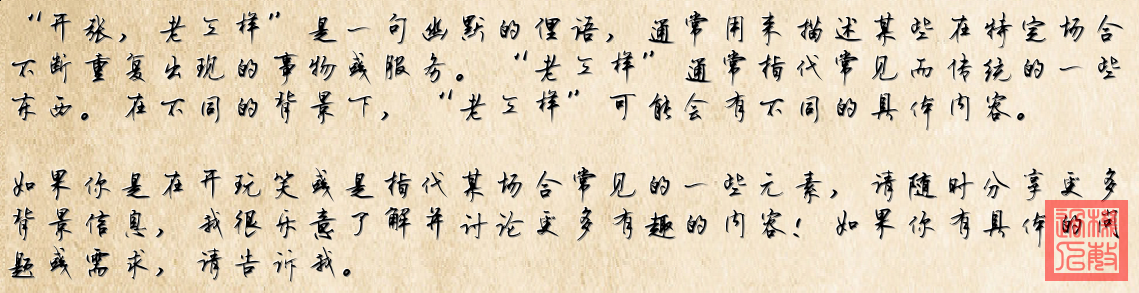 “开张，老三样”是一句幽默的俚语，通常用来描述某些在特定场合
不断重复出现的事物或服务。“老三样”通常指代常见而传统的一些
东西。在不同的背景下，“老三样”可能会有不同的具体内容。
如果你是在开玩笑或是指代某场合常见的一些元素，请随时分享更多
背景信息，我很乐意了解并讨论更多有趣的内容！如果你有具体的问
题或需求，请告诉我。